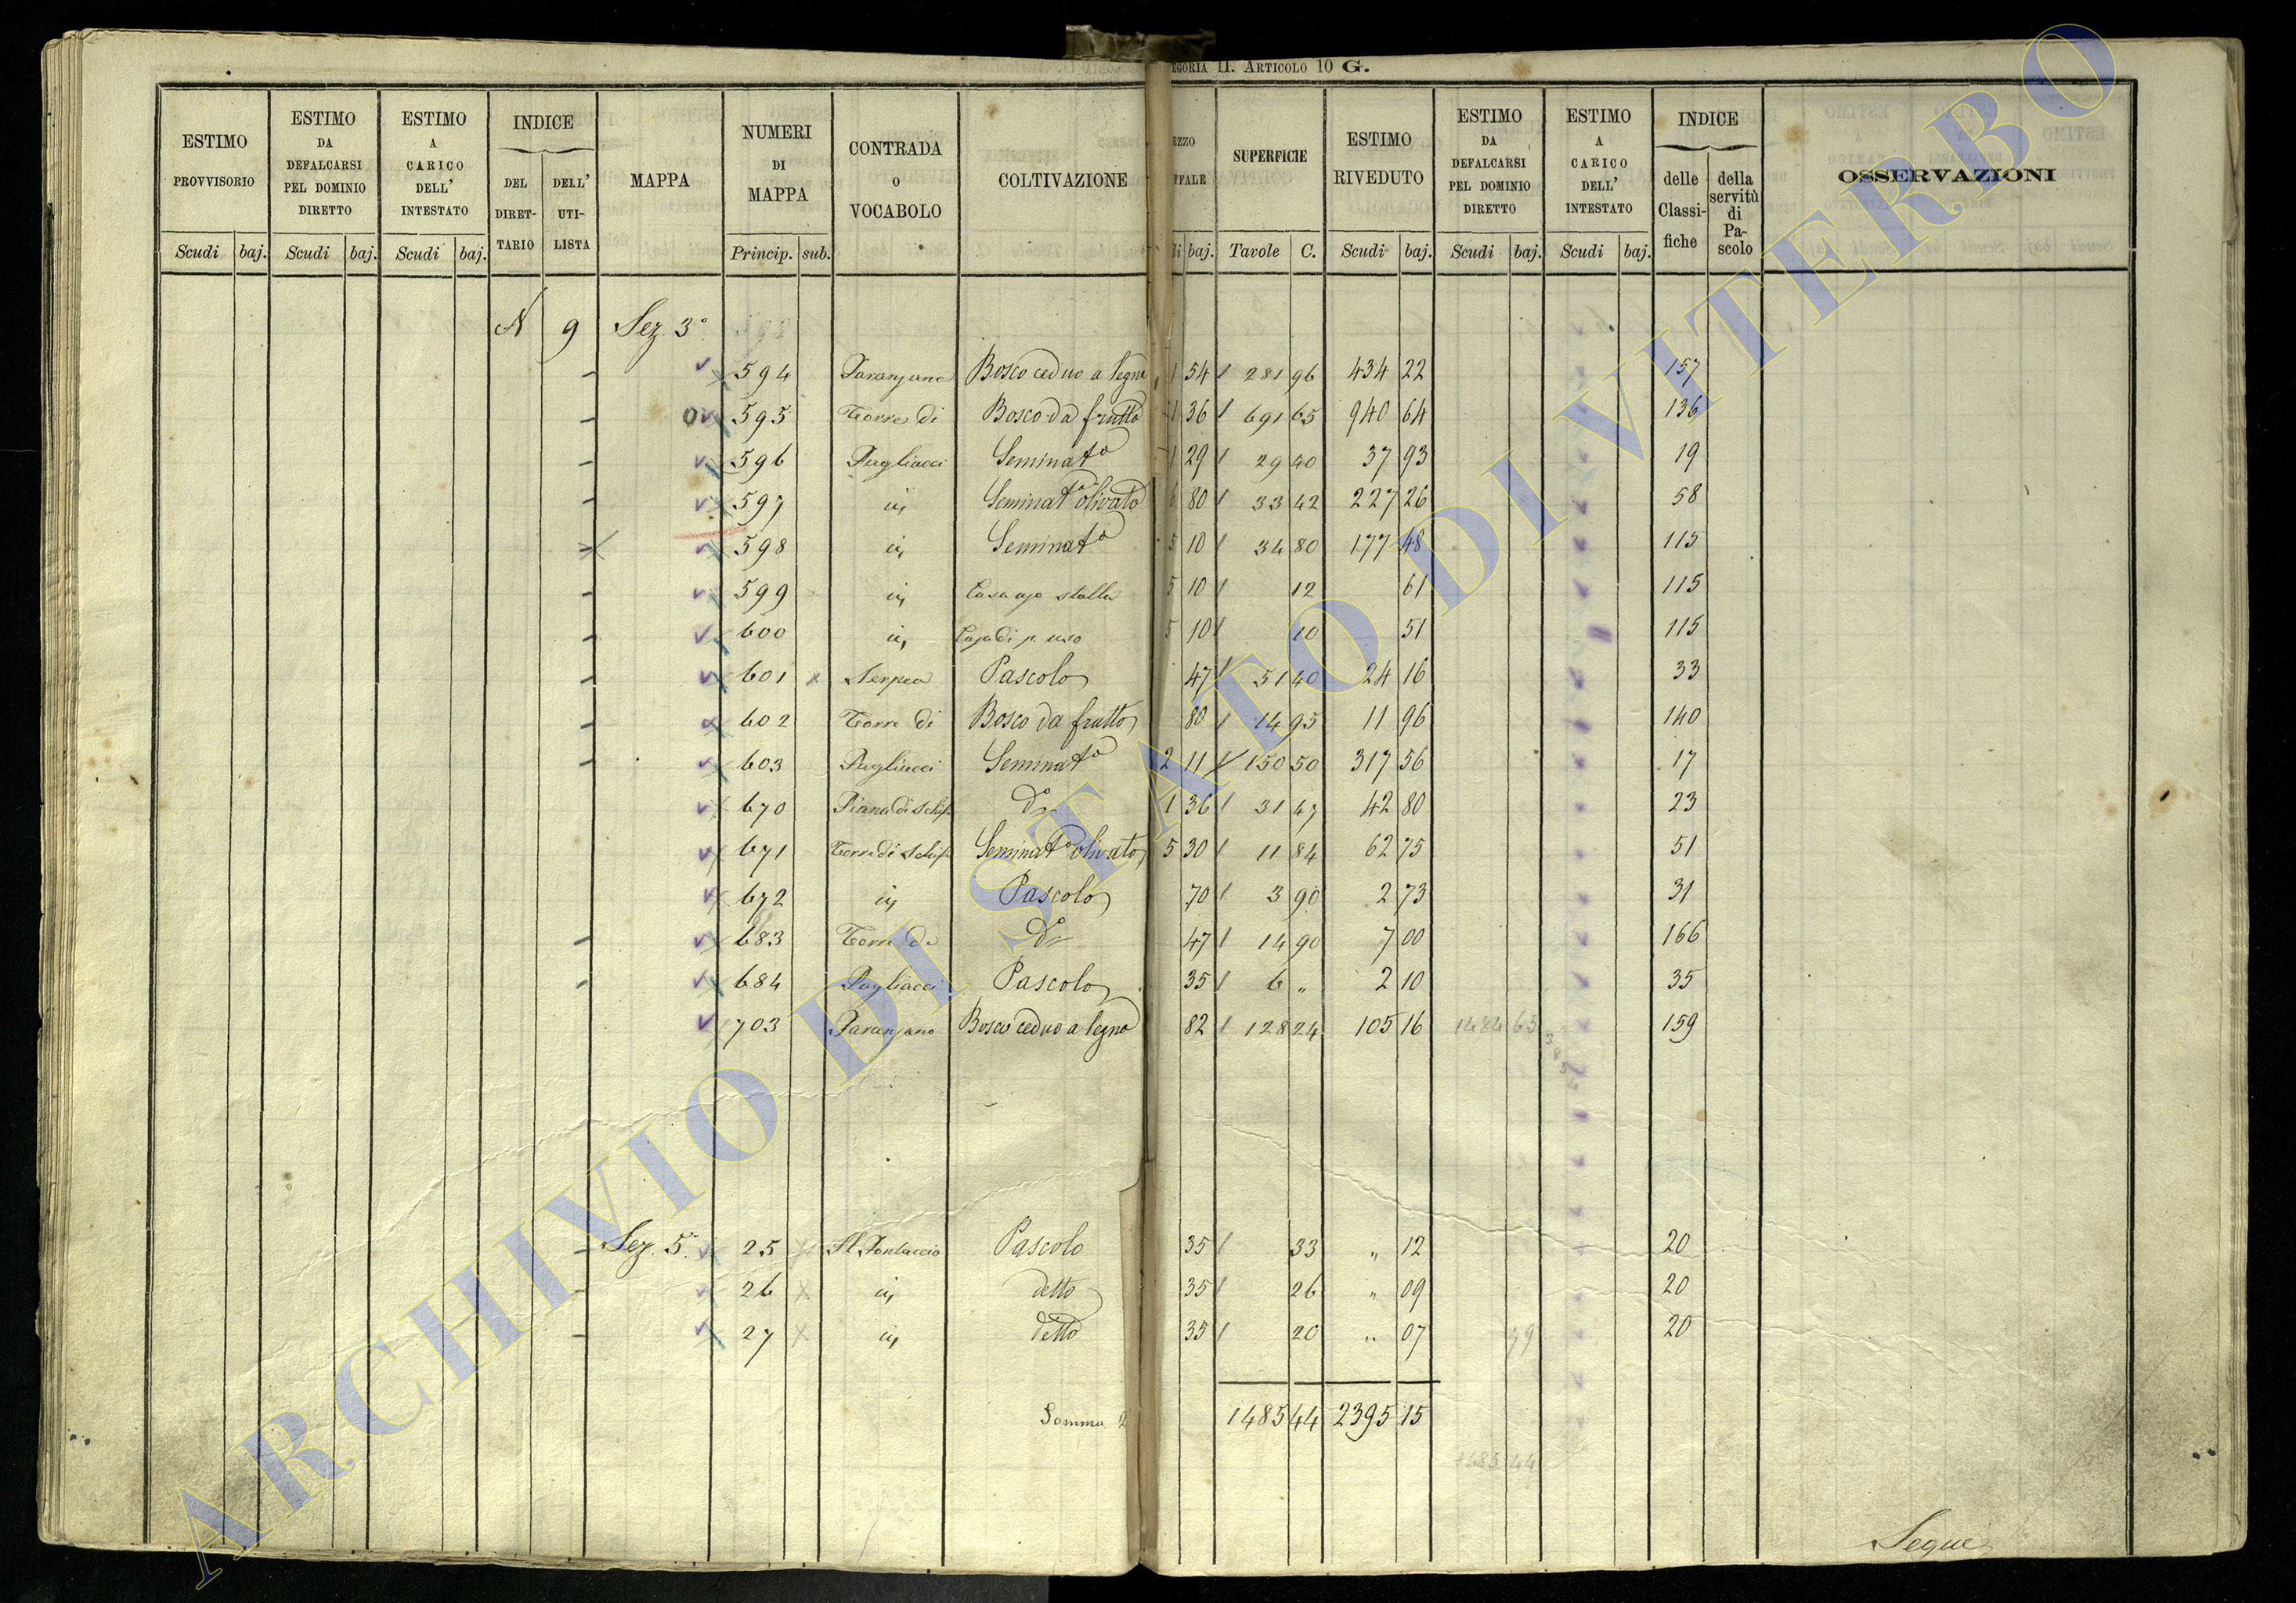 EGORIA II. ARTICOLO 10 G.
ESTIMO PROVVISORIO | ESTIMO DA DEFALCARSI PEL DOMINIO DIRETTO | ESTIMO A CARICO DELL' INTESTATO | INDICE | MAPPA | NUMERI DI MAPPA | CONTRADA O VOCABOLO | COLTIVAZIONE | EZZO FFALE | SUPERFICIE | ESTIMO RIVEDUTO | ESTIMO DA DEFALCARSI PEL DOMINIO DIRETTO | ESTIMO A CARICO DELL' INTESTATO | INDICE | OSSERVAZIONI
DEL DIRETTARIO | DELL' UTILISTA | delle Classifiche | della servitù di Pascolo
Scudi | baj. | Scudi | baj. | Scudi | baj. | Princip. | sub. | di | baj. | Tavole | C. | Scudi | baj. | Scudi | baj. | Scudi | baj.
N 9 Sez. 3ª
594 Bosco ceduo a legna 1 54 281 96 434 22 157
595 Torre di Bosco da frutto 1 36 691 65 940 64 136
596 Pagliacci Seminatº 1 29 29 40 37 93 19
597 in Seminatº olivato 6 80 33 42 227 26 58
598 in Seminatº 5 10 34 80 177 48 115
599 in Casa uso stalla 5 10 12 61 115
600 in Casa di p uso 5 10 10 51 115
601 Pascolo 47 51 40 24 16 33
602 Torre di Bosco da frutto 80 14 95 11 96 140
603 Pagliacci Seminatº 2 11 150 50 317 56 17
670 Piana di Schif Dº 1 36 31 47 42 80 23
671 Torre di Schif Seminatº olivato 5 30 11 84 62 75 51
672 in Pascolo 70 3 90 2 73 31
683 Torre di Dº 47 14 90 7 00 166
684 Pagliacci Pascolo 35 6 " 2 10 35
703 Bosco ceduo a legna 82 128 24 105 16 1484 65 159
Sez. 5ª 25 Il Fontaccio Pascolo 35 33 " 12 20
26 in detto 35 26 " 09 20
27 in detto 35 20 " 07 79 20
Somma 1485 44 2395 15
1485 44
Segue
ARCHIVIO DI STATO DI VITERBO